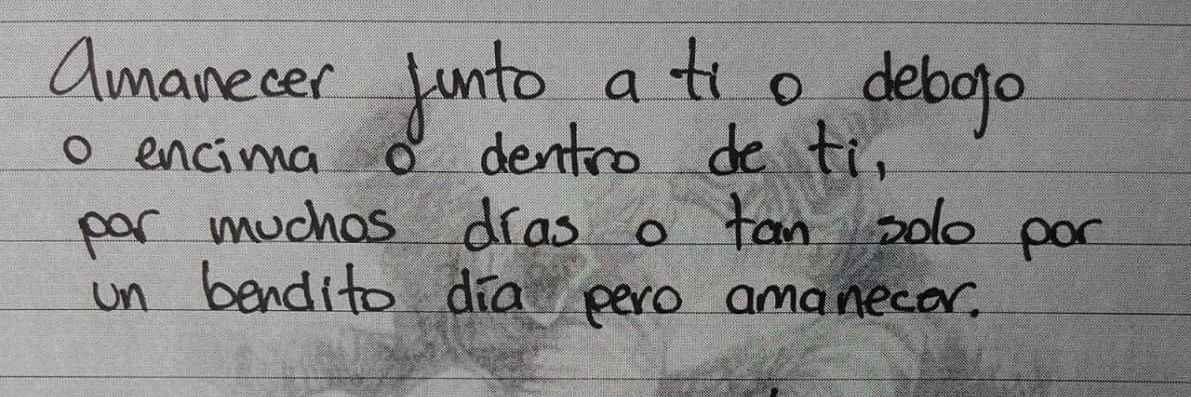 Amanecer junto a ti o debajo
o encima o dentro de ti,
por muchos días o tan solo por
un bendito día pero amanecer.